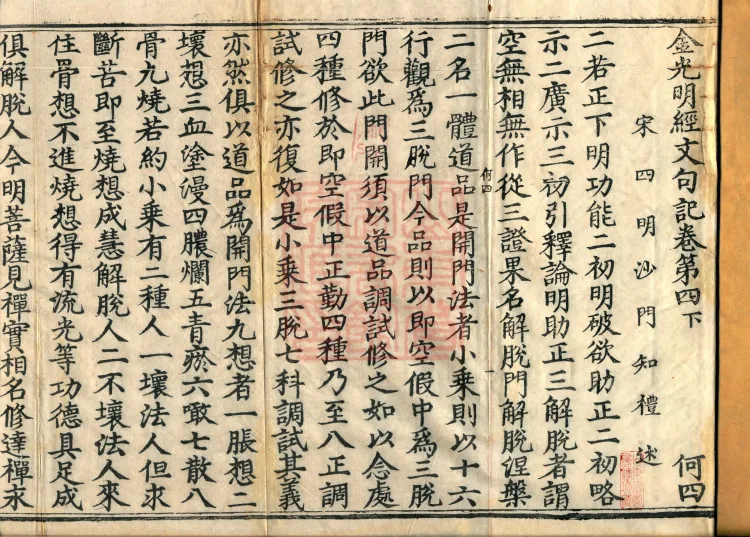 金光明經文句記卷第四下 何四
宋四明沙門知禮述
二若正下明功能二初明破欲助正二初略
示二廣示三初引釋論明助正三解脫者謂
空無相無作從三證果名解脫門解脫涅槃
何四
二名一體道品是開門法者小乘則以十六
行觀爲三脫門今品則以即空假中爲三脫
門欲此門開須以道品調試修之如以念處
四種修於即空假中正勤四種乃至八正調
試修之亦復如是小乘三脫七科調試其義
亦然俱以道品爲開門法九想者一脹想二
壞想三血塗漫四膿爛五青瘀六噉七散八
骨九燒若約小乘有二種人一壞法人但求
斷苦即至燒想成慧解脫人二不壞法人來
住骨想不進燒想得有流光等功德具足成
俱解脫人今明菩薩見禪實相名修達禪求